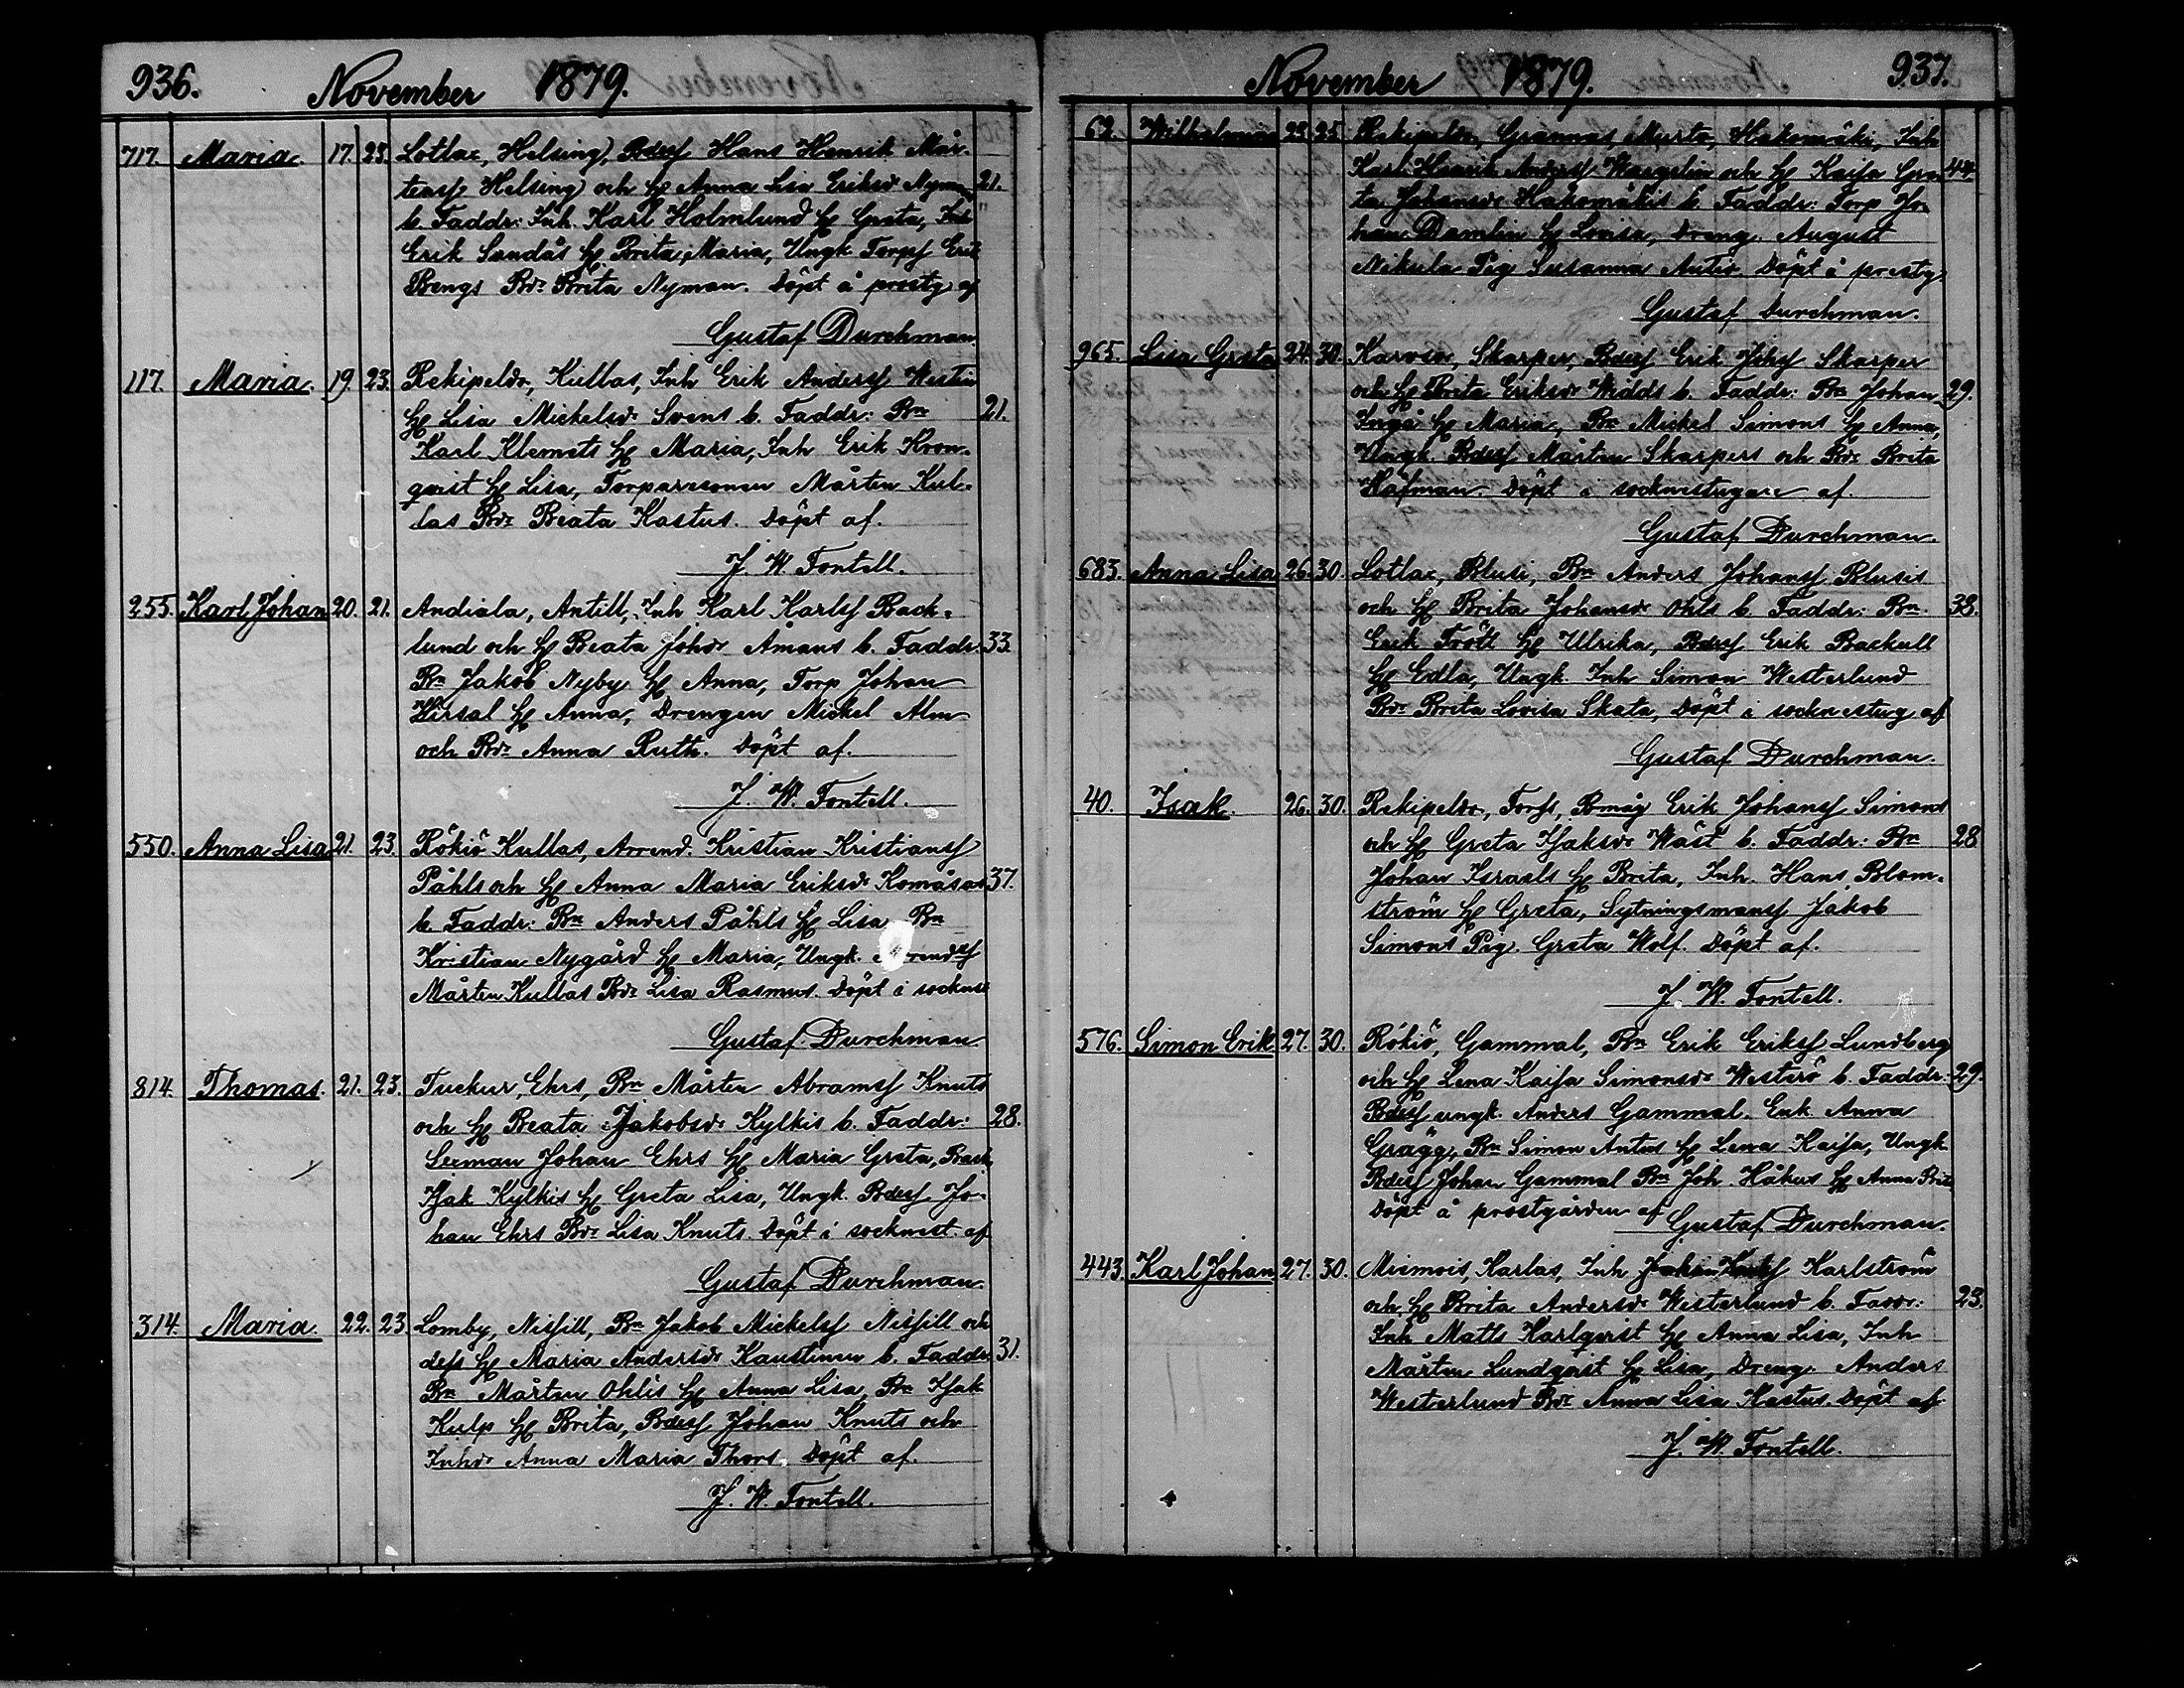 936. November 1879.
717. Maria. 17. 23. Lotlax, Helsing, Bdess Hans Henrik Mår-
tenss Helsing och H Anna Lisa Eriksdr Nyman 21.
b. Faddr: Inh. Karl Holmlund H Greta, Inh
Erik Sundås H Brita Maria, Ungk Torps Erik
Bengs Bdr Brita Nyman. Döpt å prostg af
Gustaf Durchman.
117. Maria. 19. 23. Rekipeldo, Kullas, Inh Erik Anderss Westin
H Lisa Mickelsdr Svens b. Faddr: Bn 21.
Karl Klemets H Maria, Inh Erik Kron-
qvist H Lisa, Torparesonen Mårten Kul-
las Bdr Beata Kastus. Döpt af.
J. W. Fontell.
255. Karl Johan 20. 21. Andiala, Antill, Inh Karl Karlss Back-
lund och H Beata Johdr Åmans b. Faddr: 33.
Bn Jakob Nyby H Anna, Torp Johan
Kirsal H Anna, Drengen Mickel Alm
och Bdr Anna Ruth. Döpt af.
J. W. Fontell.
550. Anna Lisa 21. 23. Rökiö Kullas, Arrend. Kristian Kristianss
Påhls och H Anna Maria Eriksdr Komåsas 37.
b. Faddr: Bn Anders Påhls H Lisa Bn
Kristian Nygård H Maria, Ungk.
Mårten Kullas Bdr Lisa Rasmus. Döpt i socknst
Gustaf Durchman
814. Thomas. 21. 23. Tuckur, Ehrs, Bn Mårten Abramss Knuts
och H Beata Jakobsdr Kylkis b. Faddr: 28.
Sexman Johan Ehrs H Maria Greta, Back
Isak Kylkis H Greta Lisa, Ungk. Bdess Jo-
han Ehrs Bdr Lisa Knuts. Döpt i socknest. af
Gustaf Durchman.
314. Maria. 22. 23. Lomby, Nissill, Bn Jakob Mickelss Nissill och
dess H Maria Andersdr Kaustinen b. Faddr: 31.
Bn Mårten Ohlis H Anna Lisa, Bn Isak
Kulp H Brita, Bdess Johan Knuts och
Inhdr Anna Maria Thors. Döpt af.
J. W. Fontell.
November 1879. 937.
62. Wilhelmina 23. 25. Rekipeldo, Grannas, Murto, Hakomäki, Inh
Karl Henrik Anderss Waegelin och H Kaisa Gre- 44.
ta Johansdr Hakomäkis b. Faddr: Torp Jo-
han Damlin H Lovisa, Dreng. August
Nikula Pig Susanna Antio. Döpt å prostg.
Gustaf Durchman.
965. Lisa Greta 24. 30. Karvsor, Skarper, Bdess Erik Johss Skarper
och H Brita Eriksdr Widds b. Faddr: Bn Johan 29.
Ingå H Maria, Bn Mickel Simons H Anna,
Ungk. Bdess Mårten Skarpers och Bdr Brita
Häfman. Döpt i socknestugan af.
Gustaf Durchman.
683. Anna Lisa 26. 30. Lotlax, Blusi, Bn Anders Johanss Blusis
och H Brita Johansdr Ohls b. Faddr: Bn. 38.
Erik Trött H Ulrika, Bdess Erik Backull
H Edla, Ungk. Inh Simon Westerlund
Bdr Brita Lovisa Skata, Döpt i socknestug af
Gustaf Durchman.
40. Isak. 26. 30. Rekipeldo, Torss, Bmåg Erik Johanss Simons
och H Greta Isaksdr Wäst b. Faddr: Bn 28
Johan Israels H Brita, Inh. Hans Blom-
ström H Greta, Sytningsmanss Jakob
Simons Pig. Greta Wolf. Döpt af.
J. W. Fontell.
576. Simon Erik 27. 30. Rökiö, Gammal, Bn Erik Erikss Lundberg
och H Lena Kaisa Simonsdr Westerö b. Faddr: 29.
Bdess ungk. Anders Gammal. Enk. Anna
Grägg, Bn Simon Antus H Lena Kaisa, Ungk
Bdess Johan Gammal Bn Joh. Håkus H Anna Brita
Döpt å prostgården af Gustaf Durchman.
443. Karl Johan 27. 30. Miemois, Karlas, Inh Karlström
och H Brita Andersdr Westerlund b. Faddr: 23.
Inh Matts Karlqvist H Anna Lisa, Inh
Mårten Lundqvist H Lisa, Dreng. Anders
Westerlund Bdr Anna Lisa Kastus. Döpt af
J. W. Fontell.